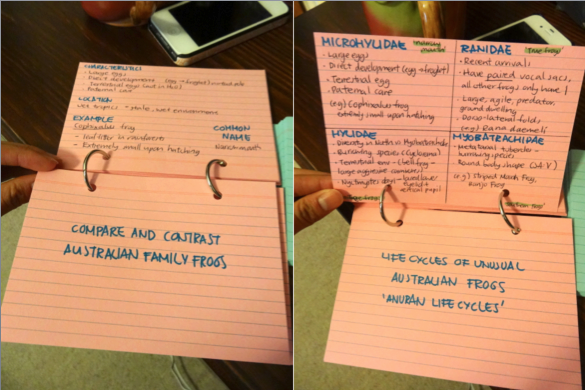 CHARACTERISTICS
- Large eggs
- Direct development (egg → froglet)
- Terrestrial eggs
LOCATION
Wet tropics → stable, wet environment
EXAMPLE
Cophixalus frog
- in rainforests
- Extremely small upon hatching
COMMON
NAME
COMPARE AND CONTRAST
AUSTRALIAN FAMILY FROGS
MICROHYLIDAE
- Large eggs
- Direct development (egg → froglet)
- Terrestrial egg
- Paternal care
(eg) Cophixalus frog
extremely small upon hatching
RANIDAE True frog
- Recent arrivals
- Have paired vocal sacs,
all other frogs only have 1
- Large, agile, predator,
ground dwelling
- Dorso-lateral folds
(eg) Rana daemeli
HYLIDAE
- Diversity in North
- Burrowing species (Cyclorana)
- Terrestrial
large aggressive
vertical pupil
MYOBATRACHIDAE
- Metatarsal tubercle →
burrowing species
- Round body shape
(e.g) Striped Marsh Frog,
Banjo Frog
LIFE CYCLES OF UNUSUAL
AUSTRALIAN FROGS
'ANURAN LIFE CYCLES'